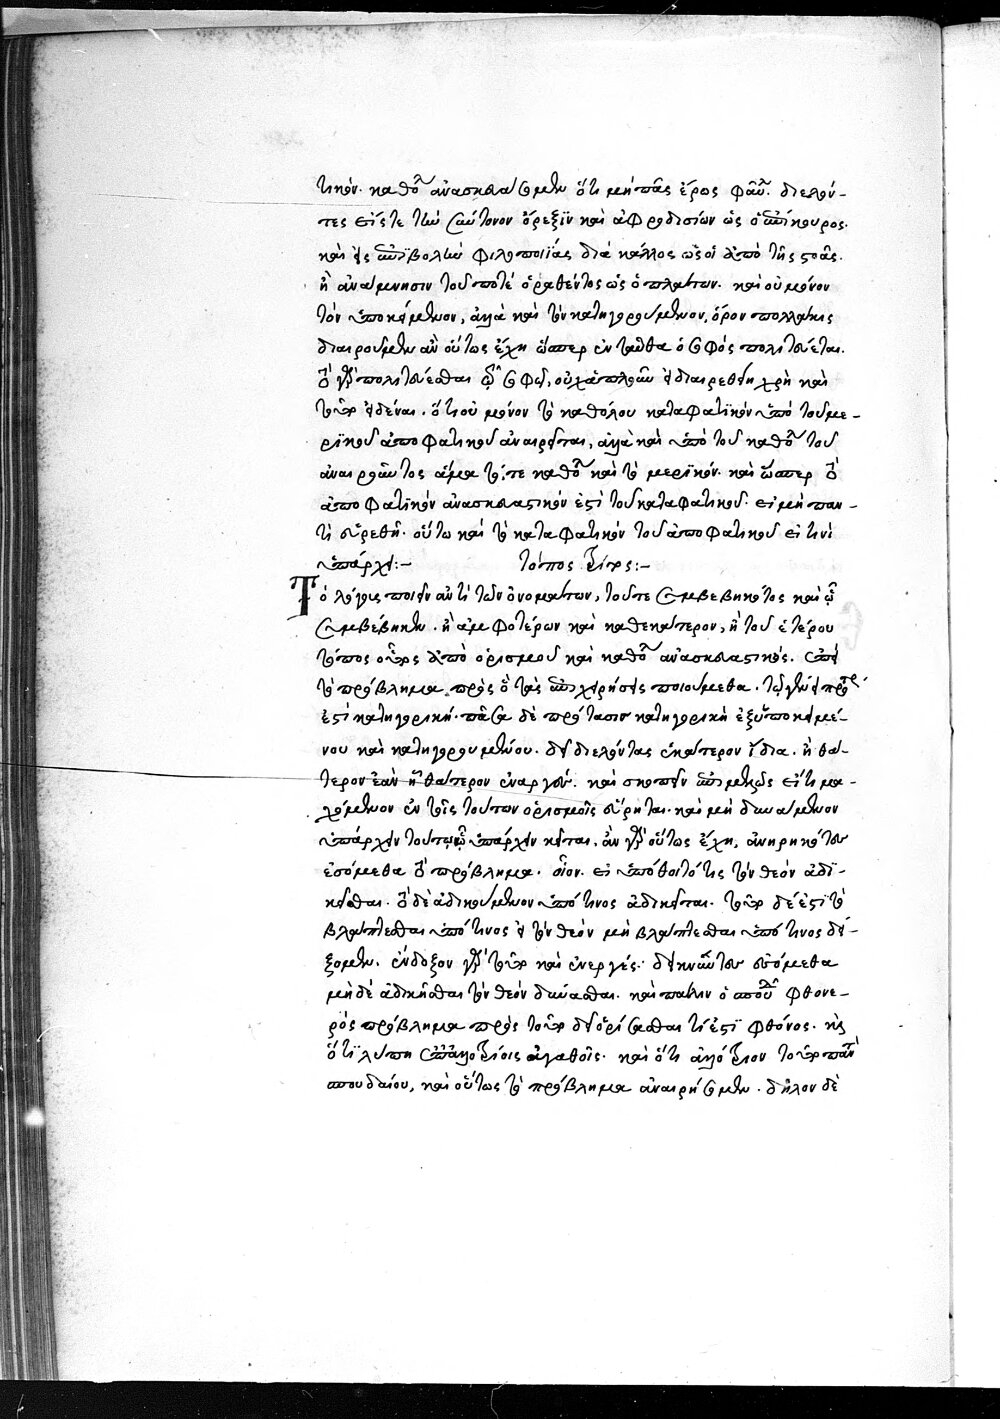 τικόν. καθόλου ἀνασκευάσομεν ὅτι μὴ πᾶς ἔρως φαῦλος. διελόν-
τες εἴς τε τὴν σύντονον ὄρεξιν καὶ ἀφροδισίων ὡς ὁ ἐπίκουρος.
καὶ εἰς ἐπιβολὴν φιλοποιΐας διὰ κάλλος ὡς οἱ ἀπὸ τῆς στοᾶς.
ἢ ἀνάμνησιν τοῦ ποτὲ ὁραθέντος ὡς ὁ πλάτων. καὶ οὐ μόνον
τὸν ὑποκείμενον, ἀλλὰ καὶ τὸν κατηγορούμενον, ὅρον πολλάκις
διαιροῦμεν ἂν οὕτως ἔχῃ ὥσπερ ἐνταῦθα ὁ σοφὸς πολιτεύεται.
τὸ γὰρ πολιτεύεσθαι τῷ σοφῷ, οὐχ ἁπλοῦν διαιρεθῆναι χρὴ καὶ
τοῦτο εἰδέναι. ὅτι οὐ μόνον τὸ καθόλου καταφατικὸν ὑπὸ τοῦ με-
ρικοῦ ἀποφατικοῦ ἀναιρεῖται, ἀλλὰ καὶ ὑπὸ τοῦ καθόλου τοῦ
ἀναιροῦντος ἅμα τό, τε καθόλου καὶ τὸ μερικόν. καὶ ὥσπερ τὸ
ἀποφατικὸν ἀνασκευαστικόν ἐστι τοῦ καταφατικοῦ. εἰ μὴ παν-
τὶ εὑρεθῇ. οὕτω καὶ τὸ καταφατικὸν τοῦ ἀποφατικοῦ εἰ τινὶ
ὑπάρχει:- τόπος τρίτος:-
Τὸ λόγους ποιεῖν ἀντὶ τῶν ὀνομάτων, τοῦ τε συμβεβηκότος καὶ ᾧ
συμβέβηκεν. ἢ ἀμφοτέρων καὶ καθεκάτερον, ἢ τοῦ ἑτέρου
τόπος οὗτος ἀπὸ ὁρισμοῦ καὶ καθόλου ἀνασκευαστικός. ἐπεὶ
τὸ πρόβλημα πρὸς ὃ τὰς ἐπιχειρήσεις ποιούμεθα.
ἐστὶ κατηγορική. πᾶσα δὲ πρότασις κατηγορικὴ ἐξ ὑποκειμέ-
νου καὶ κατηγορουμένου. δεῖ διελόντας ἑκάτερον ἰδίᾳ. ἢ θά-
τερον ἐὰν ᾖ θάτερον ἐναργές. καὶ σκοπεῖν ἐπιμελῶς εἴ τι μα-
χόμενον ἐν τοῖς τούτων ὁρισμοῖς εὕρηται. καὶ μὴ δυνάμενον
ὑπάρχειν τούτῳ ᾧ ὑπάρχειν κεῖται. ἂν γὰρ οὕτως ἔχῃ, ἀνῃρηκότες
ἐσόμεθα τὸ πρόβλημα. οἷον. εἰ ὑπόθοιτό τις τὸν θεὸν ἀδι-
κεῖσθαι. τὸ δὲ ἀδικούμενον ὑπό τινος ἀδικεῖται. τοῦτο δέ ἐστι τὸ
βλάπτεσθαι ὑπό τινος τὸν θεὸν μὴ βλάπτεσθαι ὑπό τινος δεί-
ξομεν. ἔνδοξον γὰρ τοῦτο καὶ ἐναργές. δεικνύντες ἐσόμεθα
μηδὲ ἀδικεῖσθαι τὸν θεὸν δύνασθαι. καὶ πάλιν ὁ σπουδαῖος φθονε-
ρὸς πρόβλημα πρὸς τοῦτο δεῖ ὁρίσασθαι τί ἐστι φθόνος. καὶ
ὅτι λύπη ἐπ' ἀλλοτρίοις ἀγαθοῖς. καὶ ὅτι ἀλλότριον τοῦτο παντὸς
σπουδαίου, καὶ οὕτως τὸ πρόβλημα ἀναιρήσομεν. δῆλον δὲ